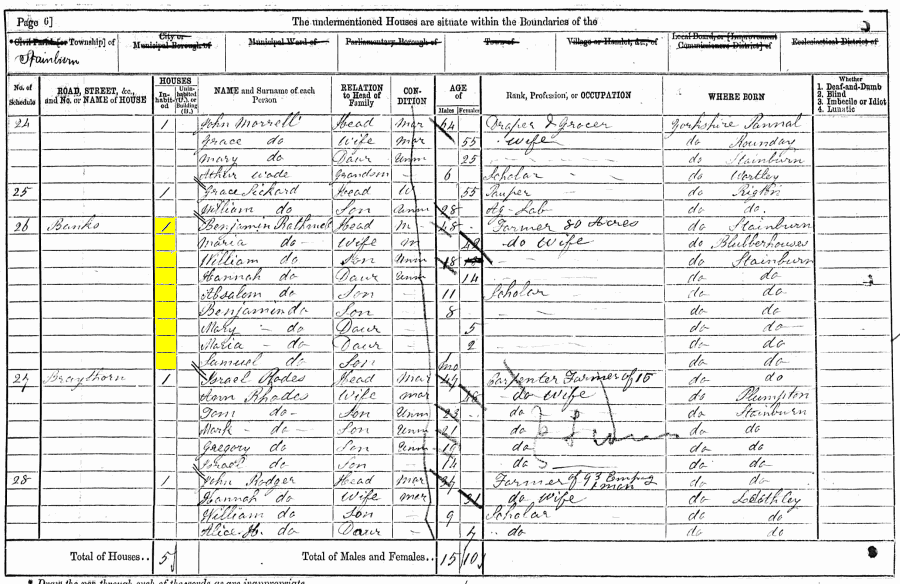 Page 6] The undermentioned Houses are situate within the Boundaries of the
Civil Parish [or Township] of City or Municipal Borough of Municipal Ward of Parliamentary Borough of Town of Village or Hamlet, &c., of Local Board, or [Improvement Commissioners District] of Ecclesiastical District of
Stainburn
No. of Schedule ROAD, STREET, &c., and No. or NAME of HOUSE HOUSES In-habit-ed Unin-habited (U.), or Building (B.) NAME and Surname of each Person RELATION to Head of Family CON-DITION AGE of Males Females Rank, Profession, or OCCUPATION WHERE BORN Whether 1. Deaf-and-Dumb 2. Blind 3. Imbecile or Idiot 4. Lunatic
24 1 John Morrell Head Mar 64 Draper & Grocer Yorkshire Pannal
Grace do Wife Mar 55 wife do Rounday
Mary do Daur Unm 25 do Stainburn
Wade Grandson 6 Scholar do Wortley
25 1 Grace Pickard Head W 55 Pauper do
William do Son Unm 28 Ag. Lab do do
26 Banks 1 Benjamin Head M 48 Farmer 80 Acres do Stainburn
Maria do Wife M do Wife do Blubberhouses
William do Son Unm 18 do Stainburn
Hannah do Daur Unm 14 do do
Absalom do Son 11 Scholar do do
Benjamin do Son 8 do do
Mary do Daur 5 do do
Maria do Daur 2 do do
Samuel do Son mo do do
27 Braythorn 1 Israel Rodes Head Mar 49 Carpenter Farmer of 15 do do
Ann Rhodes Wife Mar do Wife do Plumpton
Tom do Son Unm 23 do do Stainburn
Mark do Son Unm 21 do do do
Gregory do Son Unm 19 do do do
Israel do Son 14 do do do
28 1 John Rodger Head Mar Farmer of 93 Emping 1 man do do
Hannah do Wife Mar do Wife do
William do Son 9 Scholar do do
Alice H. do Daur 7 do do do
Total of Houses.. 5 Total of Males and Females.. 15 10